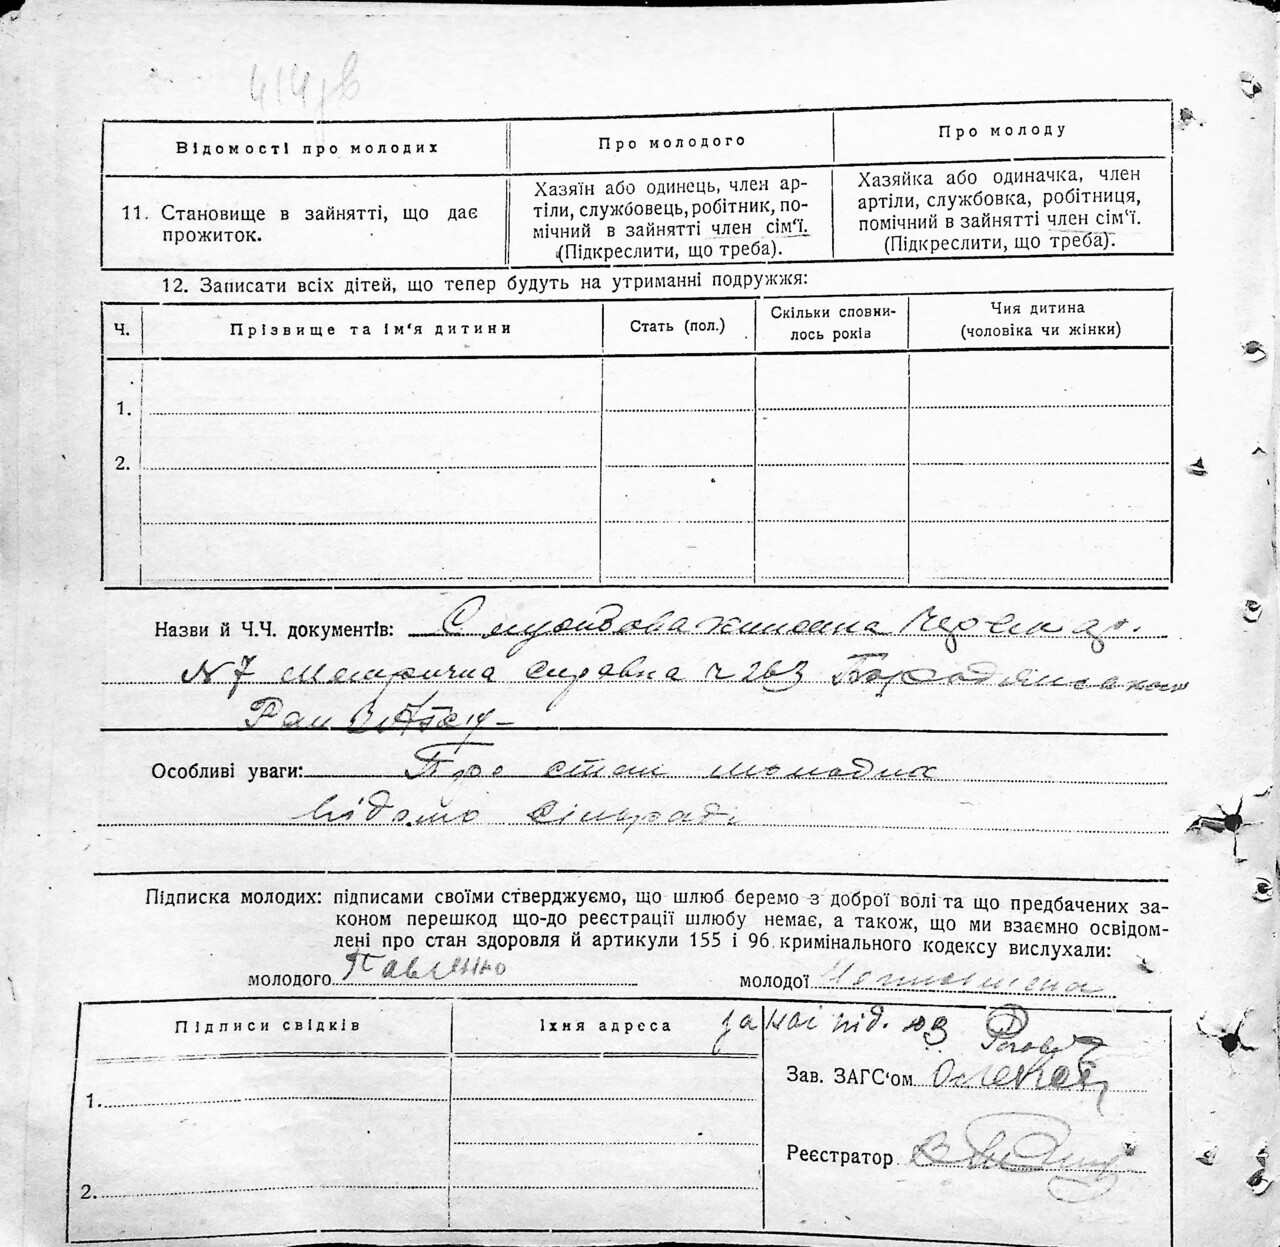 Відомості про молодих
Про молодого
Про молоду
11. Становище в зайнятті, що дає
прожиток.
Хазяїн або одинець, член ар-
тіли, службовець, робітник, по-
мічний в зайнятті член сім'ї.
(Підкреслити, що треба).
Хазяйка або одиначка, член
артіли, службовка, робітниця,
помічний в зайнятті член сім'ї.
(Підкреслити, що треба).
12. Записати всіх дітей, що тепер будуть на утриманні подружжя:
Ч.
Прізвище та ім'я дитини
Стать (пол.)
Скільки сповни-
лось років
Чия дитина
(чоловіка чи жінки)
1.
2.
Назви й Ч.Ч. документів:
N 7 Метрична справка ч 263 Бородянського
Особливі уваги: Про стан молодих
відомо сільраді
Підписка молодих: підписами своїми стверджуємо, що шлюб беремо з доброї волі та що предбачених за-
коном перешкод що-до реєстрації шлюбу немає, а також, що ми взаємно освідом-
лені про стан здоровля й артикули 155 і 96 кримінального кодексу вислухали:
молодого Павленко
молодої
Підписи свідків
Їхня адреса
Зав. ЗАГС'ом
1.
Реєстратор
2.